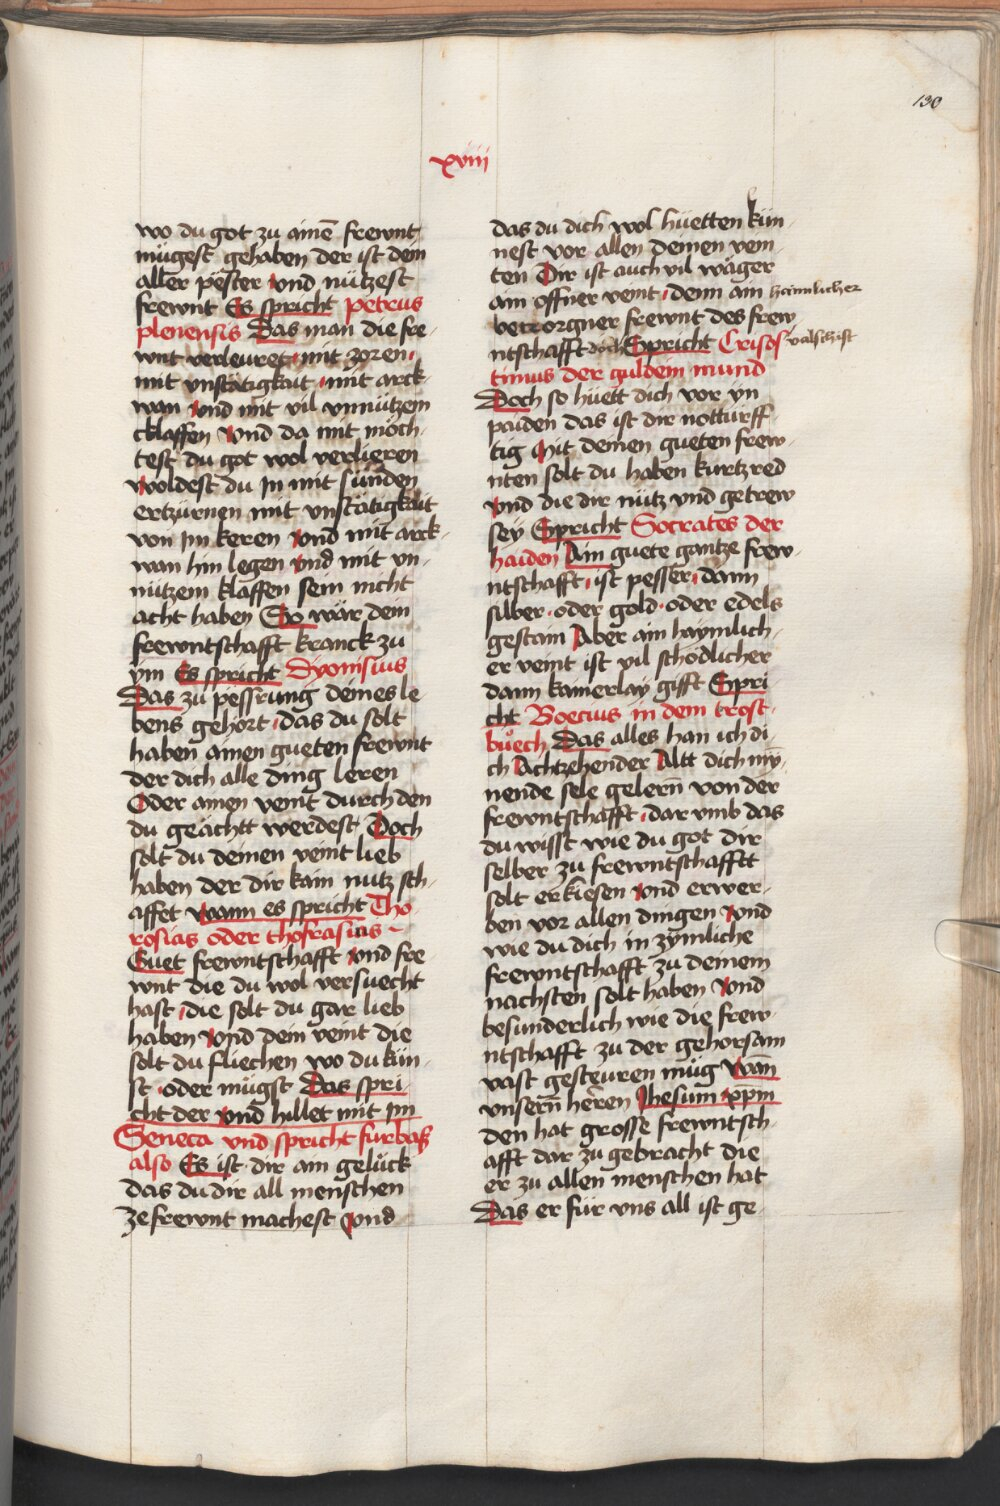 130
xviii
wo du got zu ainē frewnt
mügest gehaben der ist dein
aller pester vnd nützest
frewnt Es spricht petrus
plenensis Das man die fre
wnt verleuret mit zoren
mit vnstätigkait mit arck
wan vnd mit vil vnnützem
cklaffen Vnd da mit möch
test du got wol verlieren
woldest du Jn mit sünden
ertzürnen mit vnstätigkait
von im keren vnd mit arck
wan hin legen vnd mit vn
nützem klaffen sein nicht
acht haben So wär dein
frewntschafft kranck zu
ym Es spricht Dyonisius
Das zu pessrung deines le
bens gehört das du solt
haben ainen gueten frewnt
der dich alle ding leren
Oder ainen veint durch den
du geächtt werdest Doch
solt du deinen veint lieb
haben der dir kain nutz sch
affet wann es spricht Tho
rosias oder thofrasius
Guet frewntschafft vnd fre
wnt die du wol versuecht
hast die solt du gar lieb
haben vnd dein veint die
solt du fliechen wo du kün
st oder mügst Das spri
cht der vnd hillet mit im
Seneca vnd spricht furbas
also Es ist dir ain gelück
das du dir all menschen
ze frewnt machest vnd
das du dich wol hüetten kün
nest vor allen deinen vein
ten Dir ist auch vil wäger
ain offner veint denn ain haimlicher
verporgner frewnt des frew
ntschafft doch valsch ist Spricht Crisos
timus der guldein mund
Doch so hüett dich vor yn
paiden das ist dir notturff
tig Mit deinen gueten frew
nten solt du haben kurtz red
vnd die dir nütz vnd getrew
sey Spricht Socrates der
haiden Ain guete gantze frew
ntschafft ist pesser dann
silber oder gold oder edels
gestain Aber ain haymlich
er veint ist vil schödlicher
dann kainerlay gifft Spri
cht Boecius in dem trost
buͦech Das alles han ich di
ch Achtzehender Altt dich mÿ
nende sele gelern̄ von der
frewntschafft dar vmb das
du wisst wie du got dir
selber zu frewntschafftt
solt erkiesen vnd erwer
ben vor allen dingen vnd
wie du dich in zymliche
frewntschafft zu deinem
nächsten solt haben vnd
besunderlich wie die frew
ntschafft zu der gehorsam
vast gesteuren müg wan̄
vnsern̄ herren Jhesum̄ xp̄m
den hat grosse frewntsch
afft dar zu gebracht die
er zu allen menschen hat
Das er für vns all ist ge